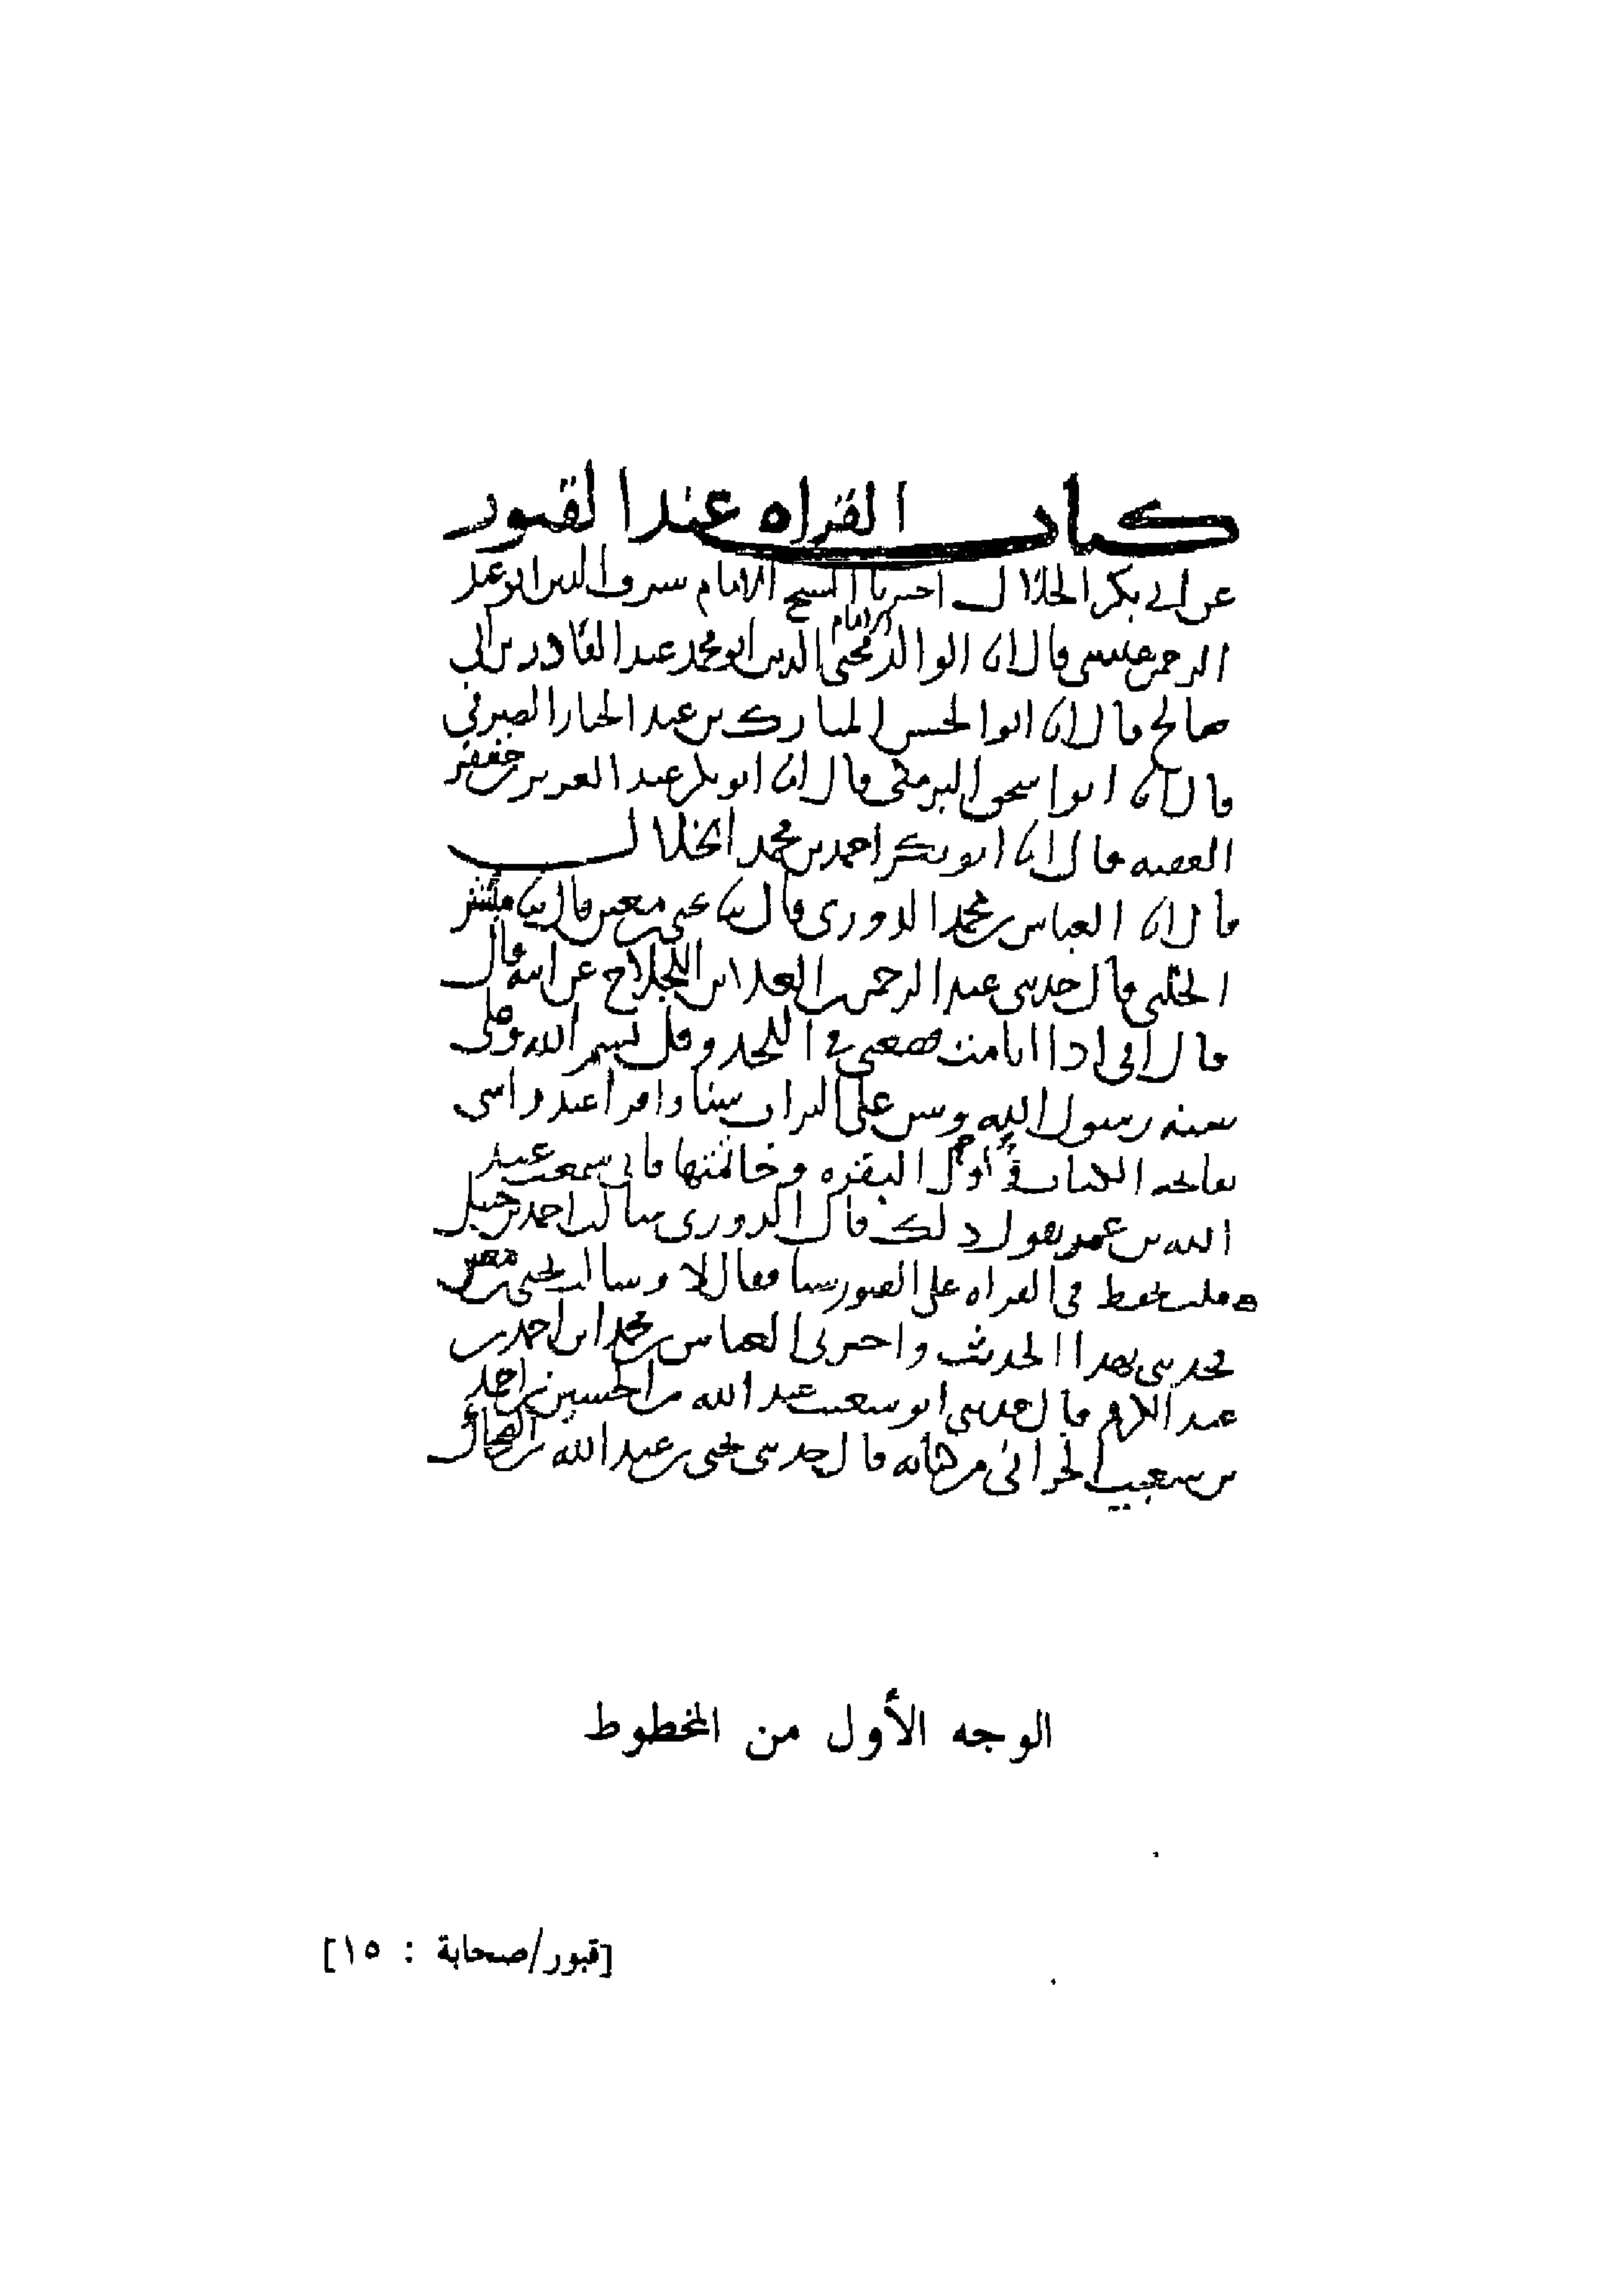 كتاب القراه عند القبور
عن ابي بكر الخلال اخبرنا الشيخ الامام شرف الدين ابو عبد
الرحمن عيسى قال انا الوالد الامام محيي الدين ابو محمد عبد القادر بن ابي
صالح قال انا ابوا الحسن المبارك بن عبد الجبار الصيرفي
قال انا ابوا سحق البرمكي قال انا ابو بكر عبد العزيز بن جعفر
الفقيه قال انا ابو بكر احمد بن محمد الخلال
قال انا العباس بن محمد الدوري قال ثنا يحيى بن معين قال ثنا مبشر
الحلبي قال حدثني عبد الرحمن بن العلا بن اللجلاج عن ابيه قال
قال ابي اذا انا مت فضعني في اللحد وقل بسم الله وعلى
سنه رسول الله وسن علي التراب سنا واقرا عند راسي
بفاتحه الكتاب واول البقره وخاتمتها فاني سمعت عبد
الله بن عمر يقول ذلك قال الدوري سالت احمد بن حنبل
قلت تحفظ في القراه على القبور شيا فقال لا وسالت يحيى بن معين
فحدثني بهذا الحديث واخبرني العباس بن محمد ابن احمد بن
عبد الكريم قال حدثني ابو شعيب عبد الله بن الحسين بن احمد
بن شعيب الحراني من كتابه قال حدثني يحيى بن عبد الله بن الضحاك
الوجه الأول من المخطوط
[قبور/صحابة : ١٥]